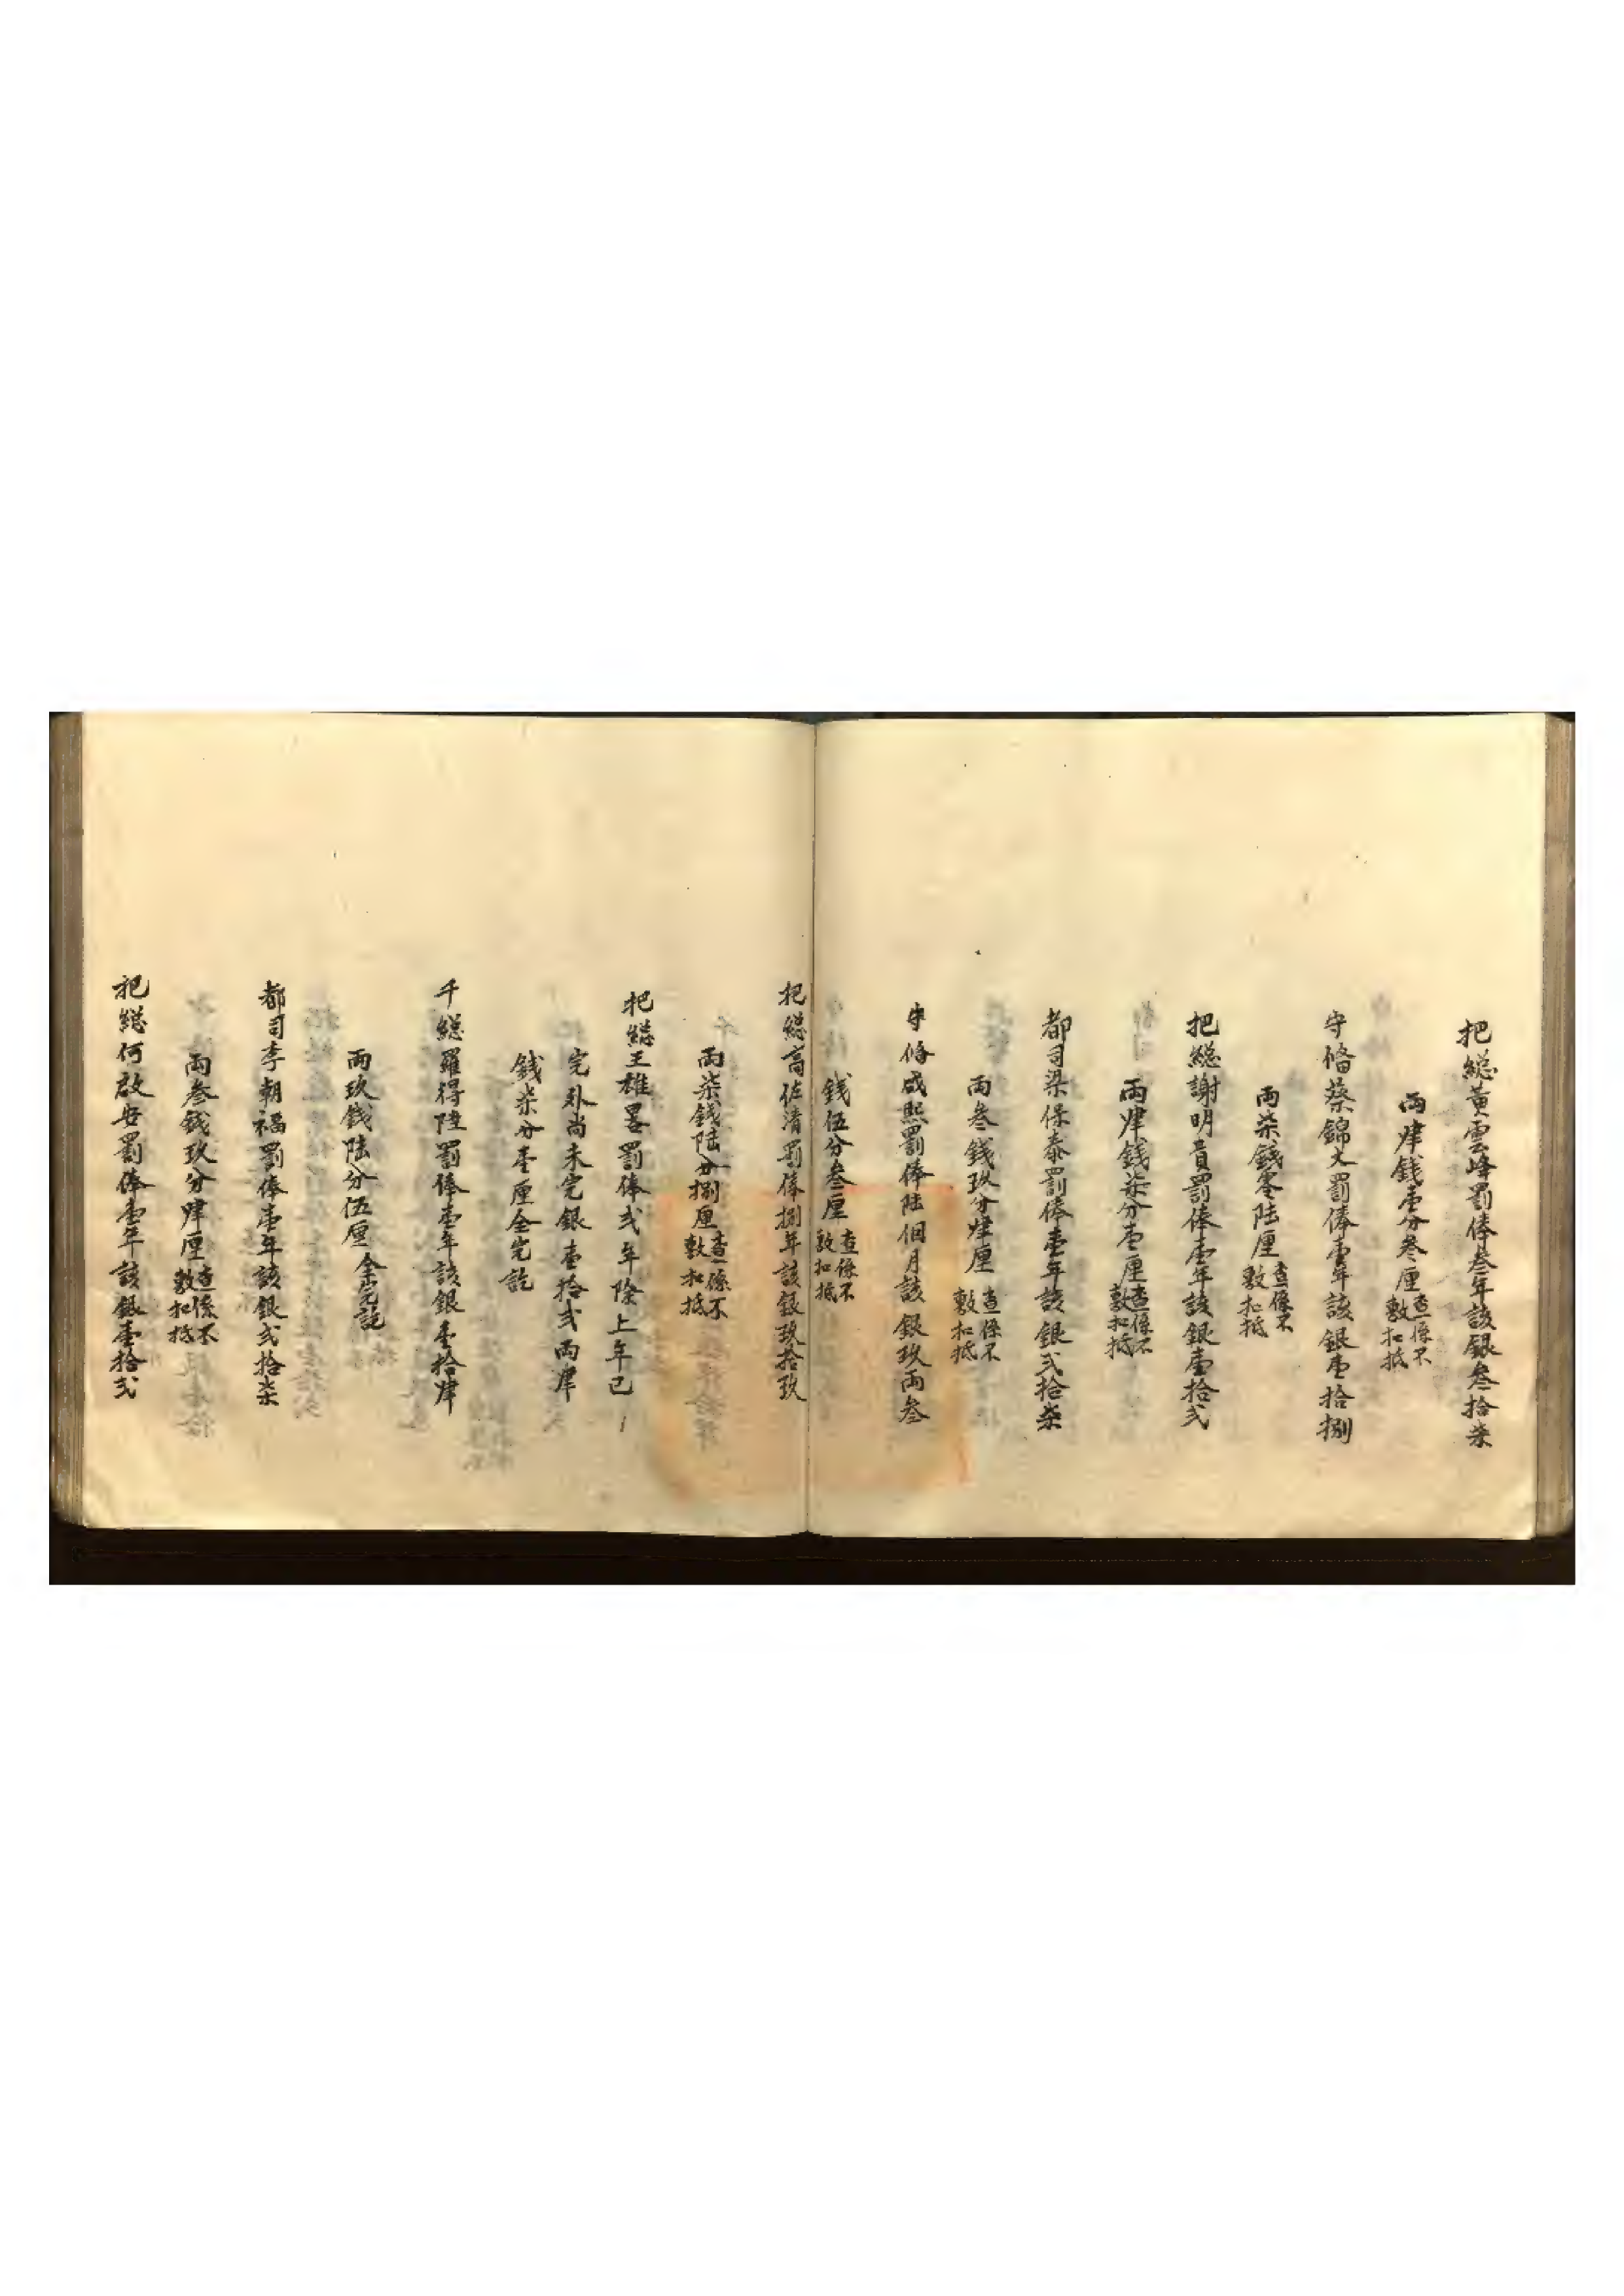 把総黃雲峰罰俸叁年該銀叁拾柒
兩肆錢壹分叁厘查係不敷扣抵
守俻蔡錦文罰俸壹年該銀壹拾捌
兩柒錢零陸厘查係不敷扣抵
把総謝明貴罰俸壹年該銀壹拾弍
兩肆錢柒分壹厘查係不敷扣抵
都司梁保泰罰俸壹年該銀弍拾柒
兩叁錢玖分肆厘查係不敷扣抵
守俻咸熙罰俸陸個月該銀玖兩叁
錢伍分叁厘查係不敷扣抵
把総高佐清罰俸捌年該銀玖拾玖
兩柒錢陸分捌厘查係不敷扣抵
把総王雄畧罰俸弍年除上年已
完外尚未完銀壹拾弍兩肆
錢柒分壹厘全完訖
千総羅得陞罰俸壹年該銀壹拾肆
兩玖錢陸分伍厘全完訖
都司李朝福罰俸壹年該銀弍拾柒
兩叁錢玖分肆厘查係不敷扣抵
把総何啟安罰俸壹年該銀壹拾弍